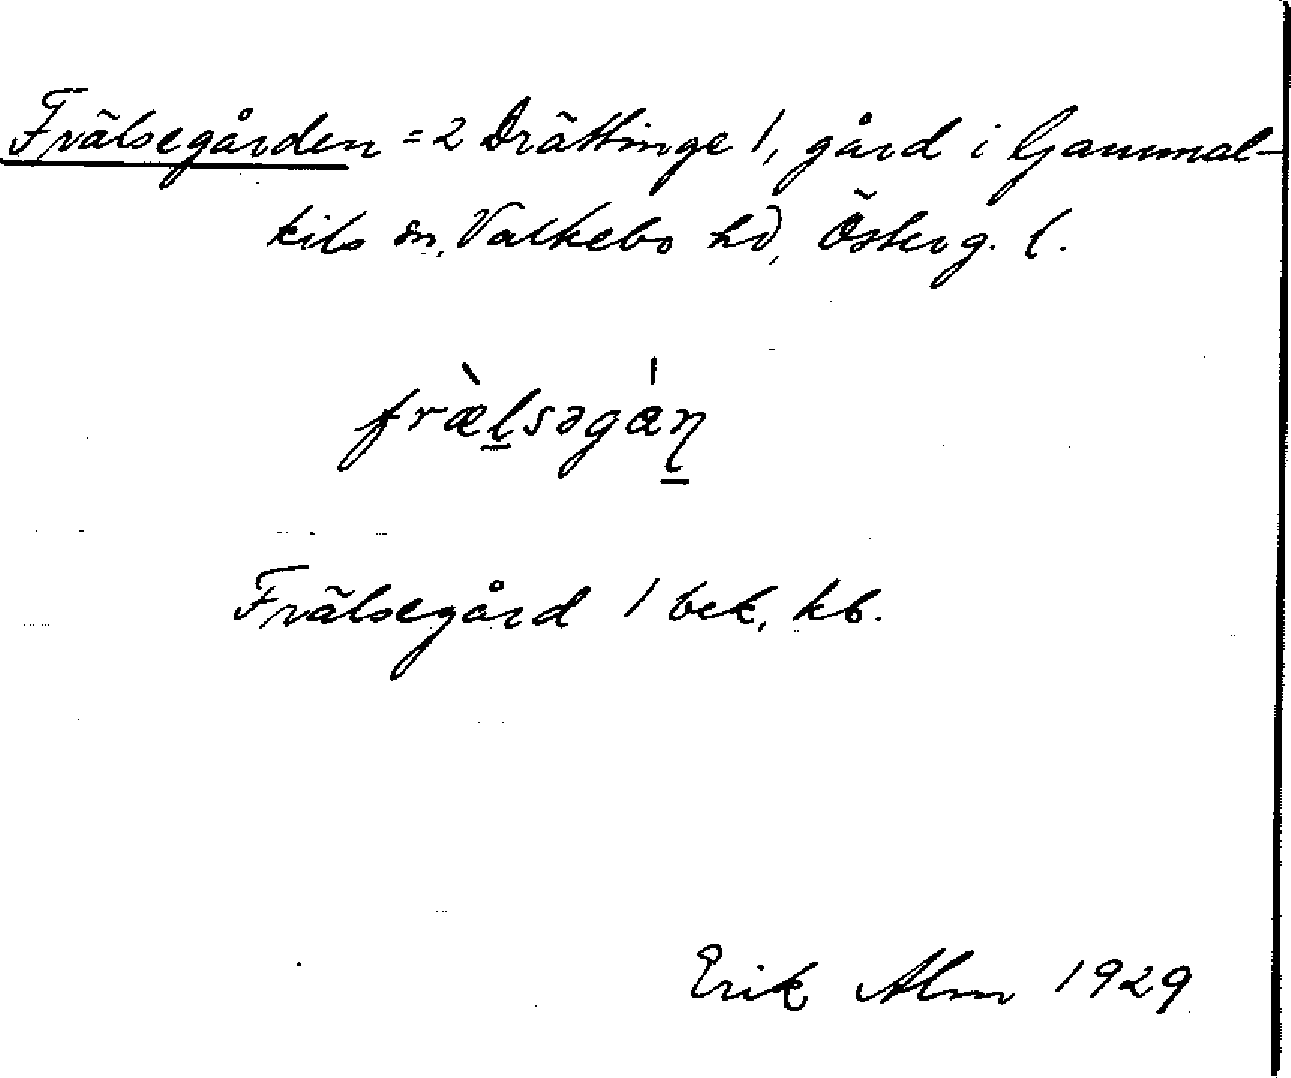 Frälsegården = 2 Drättinge 1, gård i Gammal-
kils sn, Valkebo hd, Österg. l.
fræ̀lsəgán
Frälsegård 1 bek, kb.
Erik Alm 1929